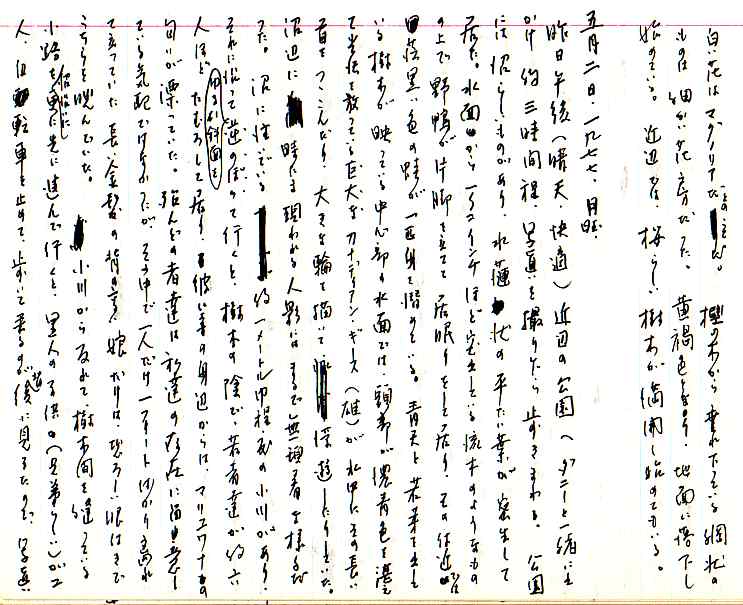 白い花はマグノリアだとのことだ。樫の木から垂れ下っている綱状の
ものは細かい花房だった。黄褐色となり、地面に落下し
始めている。近辺では、桜らしい樹木が満開し始めている。
五月二日・一九七七、月曜
昨日午後(晴天、快適)近辺の公園へダニーと一緒に出
かけ約三時間程、写真を撮りながら歩きまわる。公園
には沼らしいものがあり、水蓮状の平たい葉が密生して
居た。水面から一、二インチほど突出している流木のようなもの
の上で野鴨が片脚を立てて居眠りをして居り、その付近
黒い色の蛙が一匹身を潜めている。青天と若葉で
いる樹木が映っている中心部の水面では、頭部が濃青色を
て光沢を放っている巨大なカナディアン・ギース(雄)が水中にその長い
首をつっこんだり、大きな輪を描いて浮遊したりしていた。
沼辺に時たま現われる人影にはまるで無頓着な様子だ
った。沼に注いでいる約一メートル巾程度の小川があり、
それに沿ってゆるい斜面を逆のぼって行くと、樹木の陰で、若者達が約六
人ほどたむろして居り、彼い等の身辺からは、マリュワナの
匂いが漂っていた。殆んどの者達は私達の存在に留意し
ている気配はなかったが、その中で一人だけ一フィートばかり離れ
て立っていた長い金髪の背の高い娘だけは、恐ろしい眼付きで
こちらを睨んでいた。小川から反れて、樹木間を縫っている
小路を更に先に進んで行くと、黒人の子供(兄弟らしい)が二
人、自転車を止めて、歩いて来るのが後に見えたので、写真